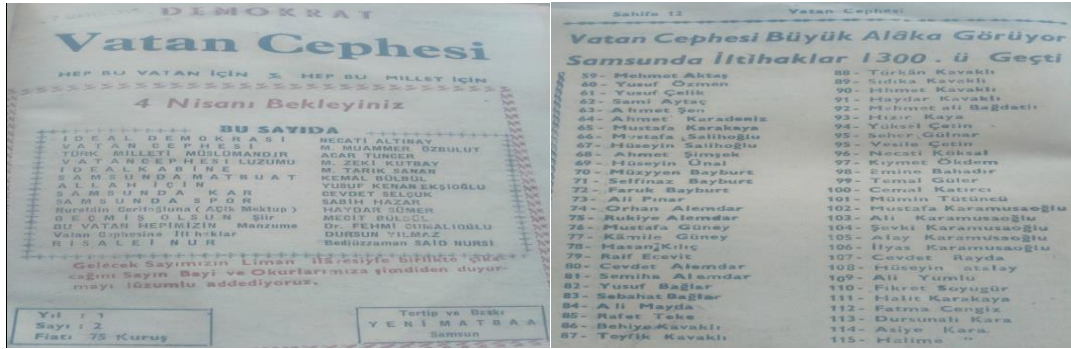 DEMOKRAT
Vatan Cephesi
HEP BU VATAN İÇİN & HEP BU MİLLET İÇİN
4 Nisanı Bekleyiniz
BU SAYIDA
İDEAL DEMOKRASİ NECATİ ALTINAY
VATAN CEPHESİ M. MUAMMER ÖZBULUT
TÜRK MİLLETİ MÜSLÜMANDIR ACAR TUNCER
VATANCEPHESİ LUZUMU M. ZEKİ KUTBAY
İDEAL KABİNE M. TARIK SANAN
SAMSUNDA MATBUAT KEMAL BÜLBÜL
ALLAH İÇİN YUSUF KENAN EKŞİOĞLU
SAMSUNDA KAR CEVDET SELÇUK
SAMSUNDA SPOR SABİH HAZAR
Nurettin Ceritoğluna (Açık Mektup) HAYDAR SÜMER
GEÇMİŞ OLSUN Şiir MECİT BÜLBÜL
BU VATAN HEPİMİZİN Manzume Dr. FEHMİ CUMALIOĞLU
Vatan Cephesine İltihaklar DURSUN YILMAZ
RİSALEİ NUR Bediüzzaman SAİD NURSİ
Gelecek Sayımızın Liman İlâvesiyle birlikte çıka
cağını Sayın Bayi ve Okurlarımıza şimdiden duyur
mayı lüzumlu addediyoruz.
Yıl : 1
Sayı : 2
Fiatı: 75 Kuruş
Tertip ve Baskı
YENİ MATBAA
Samsun
Sahife 12 Vatan Cephesi
Vatan Cephesi Büyük Alâka Görüyor
Samsunda İltihaklar 1300. ü Geçti
59- Mehmet Aktaş
60- Yusuf Özmen
61- Yusuf Çelik
62- Sami Aytaç
63- Ahmet Şen
64- Ahmet Karadeniz
65- Mustafa Karakaya
66- Mustafa Salihoğlu
67- Hüseyin Salihoğlu
68- Ahmet Şimşek
69- Hüseyin Ünal
70- Müzyyen Bayburt
71- Selfinaz Bayburt
72- Faruk Bayburt
73- Ali Pınar
74- Orhan Alemdar
75- Rukiye Alemdar
76- Mustafa Güney
77- Kâmile Güney
78- Hasan Kılıç
79- Raif Ecevit
80- Cevdet Alemdar
81- Semiha Alemdar
82- Yusuf Bağlar
83- Sebahat Bağlar
84- Ali Mayda
85- Rafet Teke
86- Behiye Kavaklı
87- Teyfik Kavaklı
88- Türkân Kavaklı
89- Sıdıka Kavaklı
90- Hikmet Kavaklı
91- Haydar Kavaklı
92- Mehmet ali Bağdatlı
93- Hızır Kaya
94- Yüksel Çetin
95- Seher Gülnar
95- Vesile Çetin
96- Necati Köksal
97- Kıymet Ökdem
98- Emine Baladır
99- Temal Güler
100- Cemal Katırcı
101- Mümin Tütüncü
102- Mustafa Karamusaoğlu
103- Ali Karamusaoğlu
104- Şevki Karamusaoğlu
105- Alay Karamusaoğlu
106- İlyas Karamusaoğlu
107- Cevdet Rayda
108- Hüseyin atalay
109- Ali Yumlu
110- Fikret Soyugür
111- Halit Karakaya
112- Fatma Cengiz
113- Dursunali Kara
114- Asiye Kara
115- Halime "